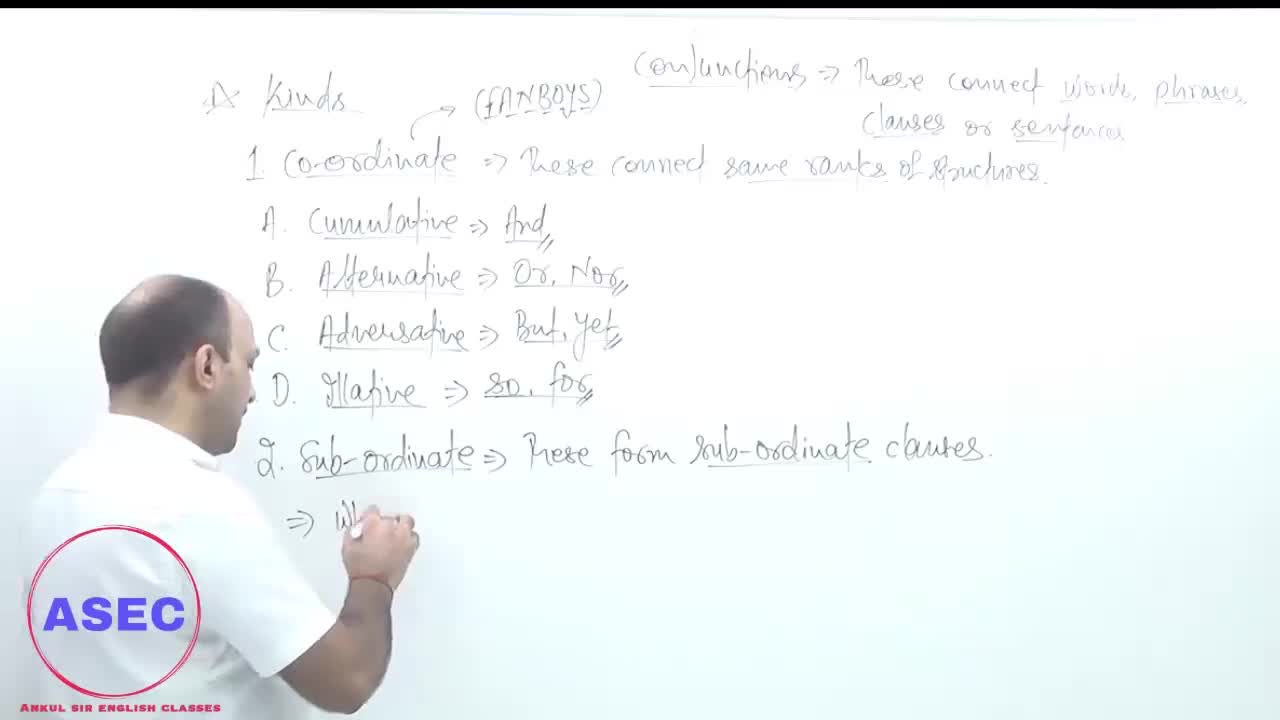 Conjunctions => These connect words, phrases,
clauses or sentences
Kinds
(FANBOYS)
1. Co-ordinate => These connect same ranks of structures.
A. Cumulative => And
B. Alternative => Or, Nor
C. Adversative => But, Yet
D. Illative => so, for
2. Sub-ordinate => These form sub-ordinate clauses.
=>
ASEC
ANKUL SIR ENGLISH CLASSES